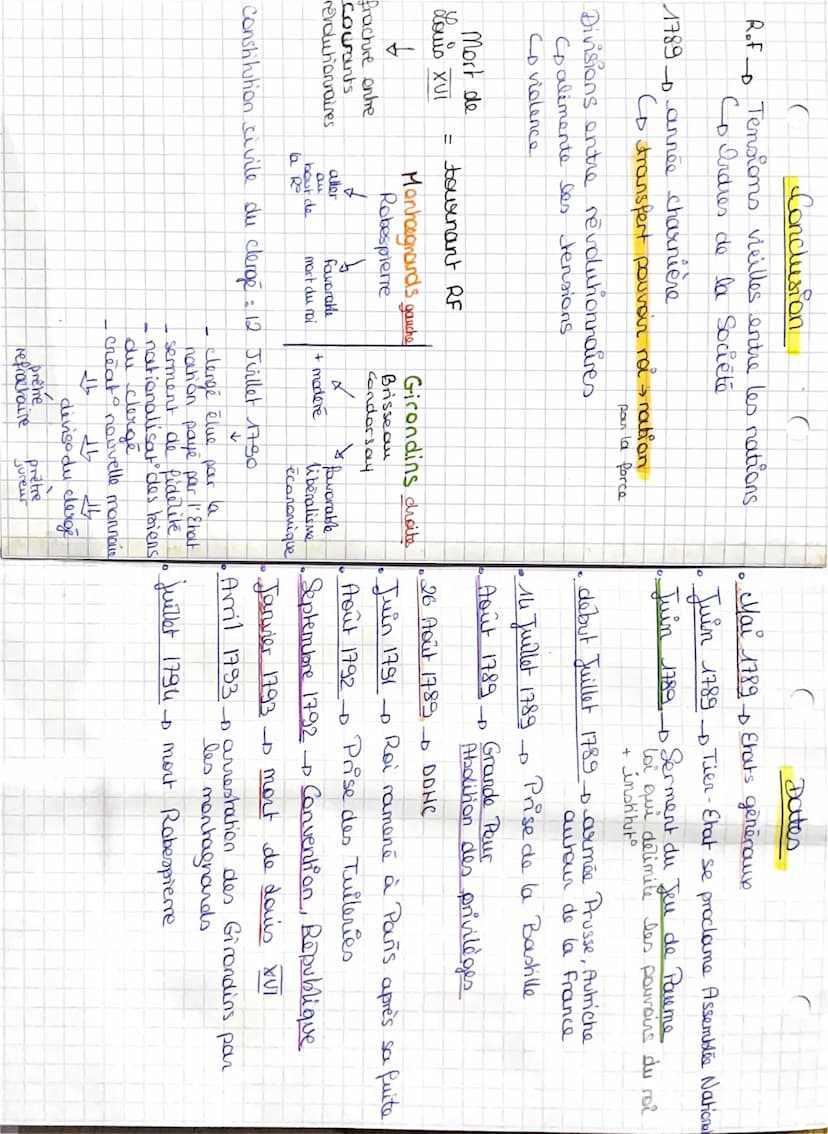 Conclusion
R.F → Tensions vieilles entre les nations
↳ Ordres de la Société
1789 → année charnière
↳ transfert pouvoir roi → nation
par la force
Divisions entre révolutionnaires
↳ alimente les tensions
↳ violence
Mort de
Louis XVI = tournant RF
↓
fracture entre
courants
révolutionnaires
Montagnards gauche
Robespierre
aller
au
bout de
la R°
favorable
mort du roi
Girondins droite
Brisseau
Condorsay
+ modéré
favorable
libéralisme
économique
constitution civille du clergé = 12 Juillet 1790
↓
- clergé élue par la
nation payé par l'Etat
- serment de fidélité
- nationalisat° des biens
du clergé
- créat° nouvelle monnaie
⇓ ⇓ ⇓
divise du clergé
prêtre
réfractaire
prêtre
jureur
Dates
• Mai 1789 → Etats généraux
• Juin 1789 → Tier-Etat se proclame Assemblée National
• Juin 1789 → Serment du Jeu de Paume
loi qui délimite les pouvoirs du roi
+ institut°
• début Juillet 1789 → armée Prusse, Autriche
autour de la France
• 14 Juillet 1789 → Prise de la Bastille
• Août 1789 → Grande Peur
Abolition des privilèges
• 26 Août 1789 → DDHC
• Juin 1791 → Roi ramené à Paris après sa fuite
• Août 1792 → Prise des Tuileries
• Septembre 1792 → Convention, République
• Janvier 1793 → mort de Louis XVI
• Avril 1793 → arrestation des Girondins par
les montagnards
• juillet 1794 → mort Robespierre